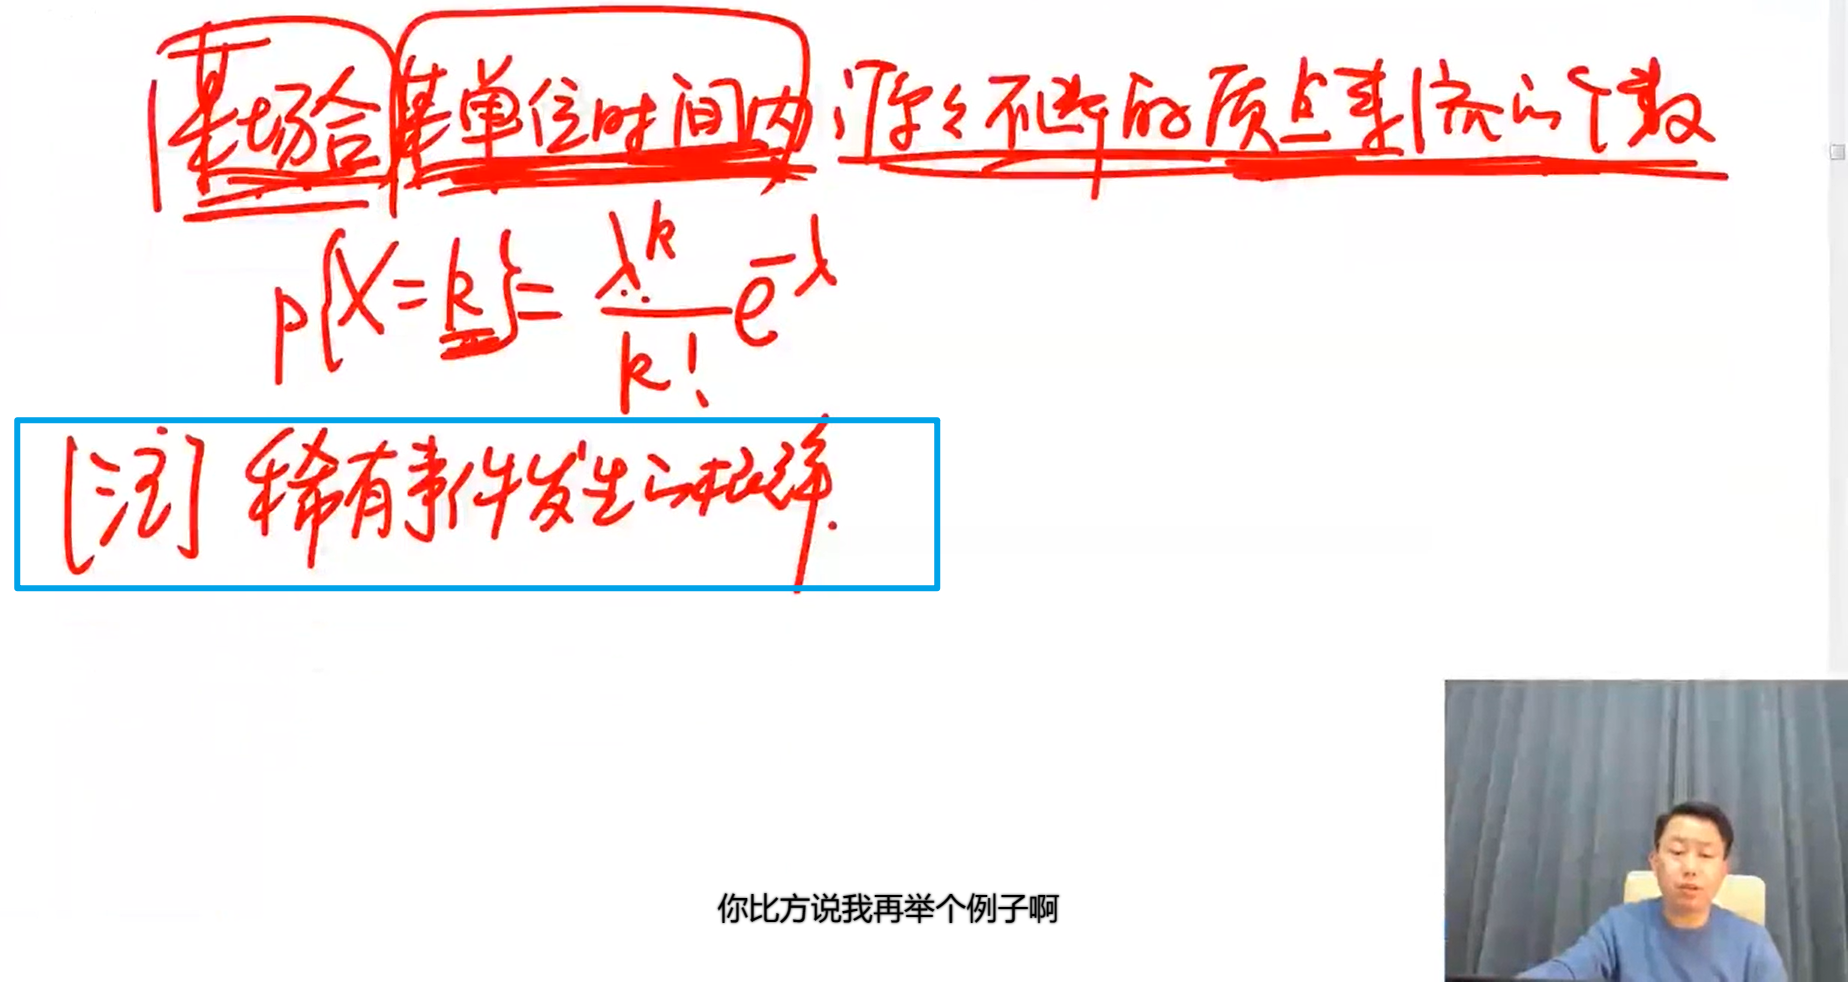 某场合某单位时间内源々不断的质点来流的个数
P{X=k}=\frac{λ^k}{k!}e^{-λ}
[注] 稀有事件发生的概率.
你比方说我再举个例子啊